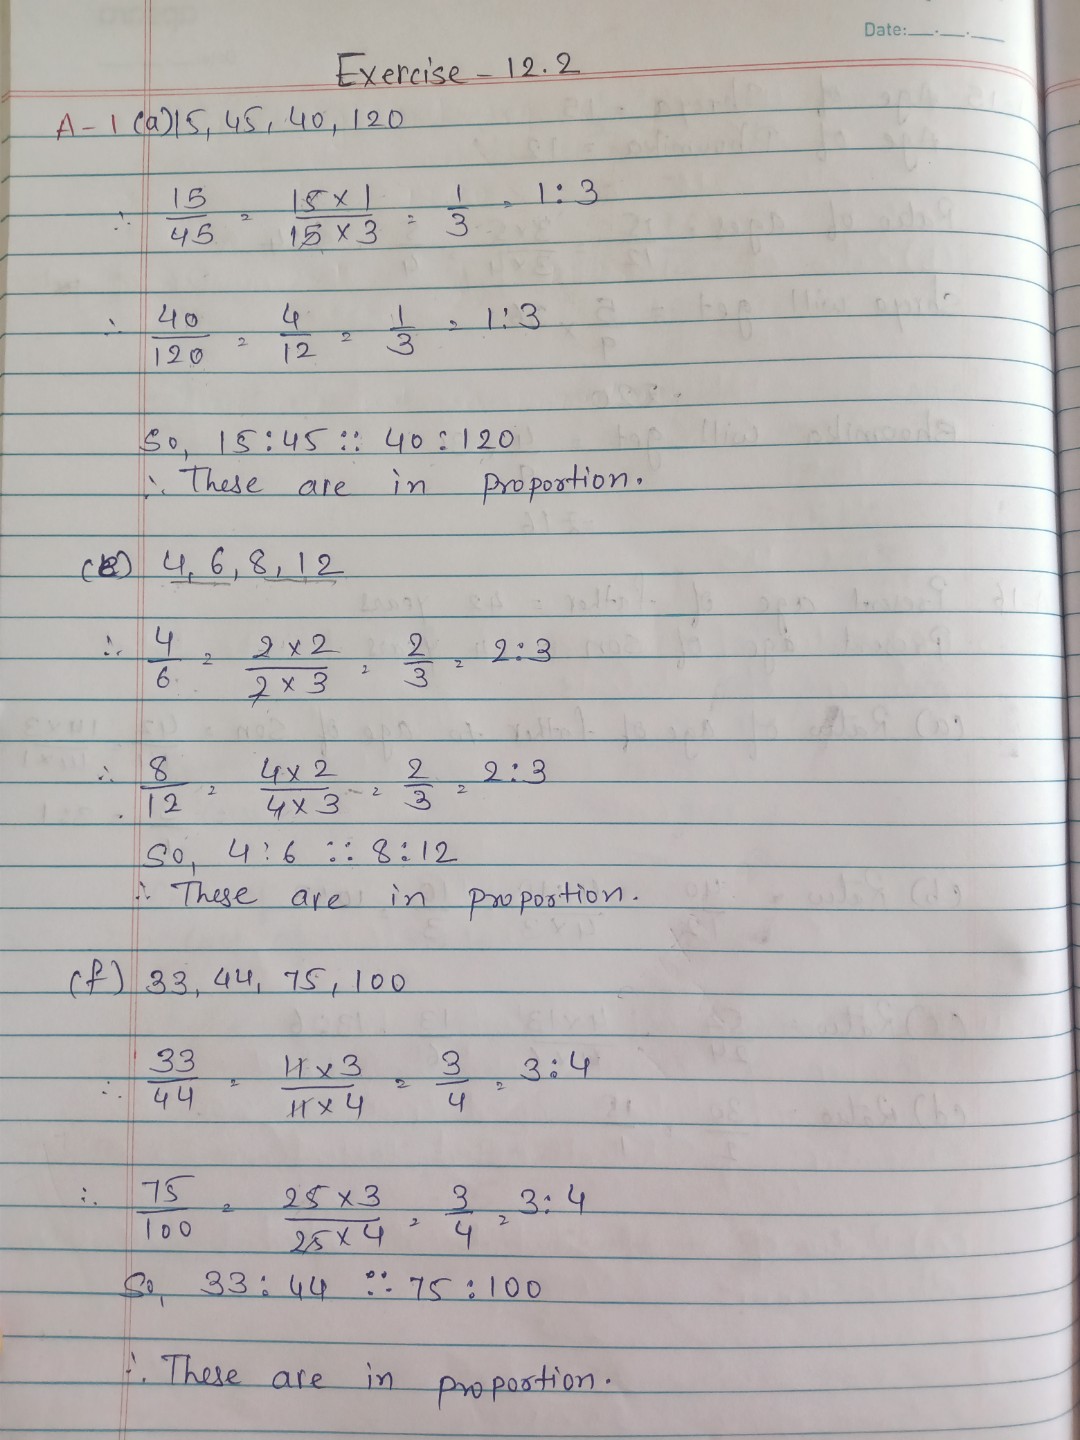 Date:__.__.__
Exercise - 12.2
A-1 (a) 15, 45, 40, 120
∴ 15/45 = 15 × 1/15 × 3 = 1/3 = 1:3
∴ 40/120 = 4/12 = 1/3 = 1:3
So, 15:45 :: 40:120
∴ These are in proportion.
4, 6, 8, 12
∴ 4/6 = 2 × 2/2 × 3 = 2/3 = 2:3
∴ 8/12 = 4 × 2/4 × 3 = 2/3 = 2:3
So, 4:6 :: 8:12
∴ These are in proportion.
(f) 33, 44, 75, 100
∴ 33/44 = 11 × 3/11 × 4 = 3/4 = 3:4
∴ 75/100 = 25 × 3/25 × 4 = 3/4 = 3:4
So, 33:44 :: 75:100
∴ These are in proportion.